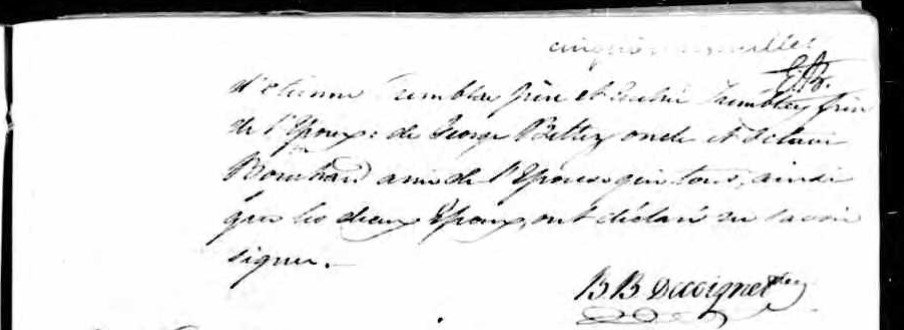 cinquième feuillet
E.B.
d'Etienne Tremblay père et André Tremblay frère
de l'Epoux: de George Belley oncle et Octave
Bouchard ami de l'Epouse qui tous, ainsi
que les deux Epoux, ont déclaré ne savoir
signer. —
B B Decoigne